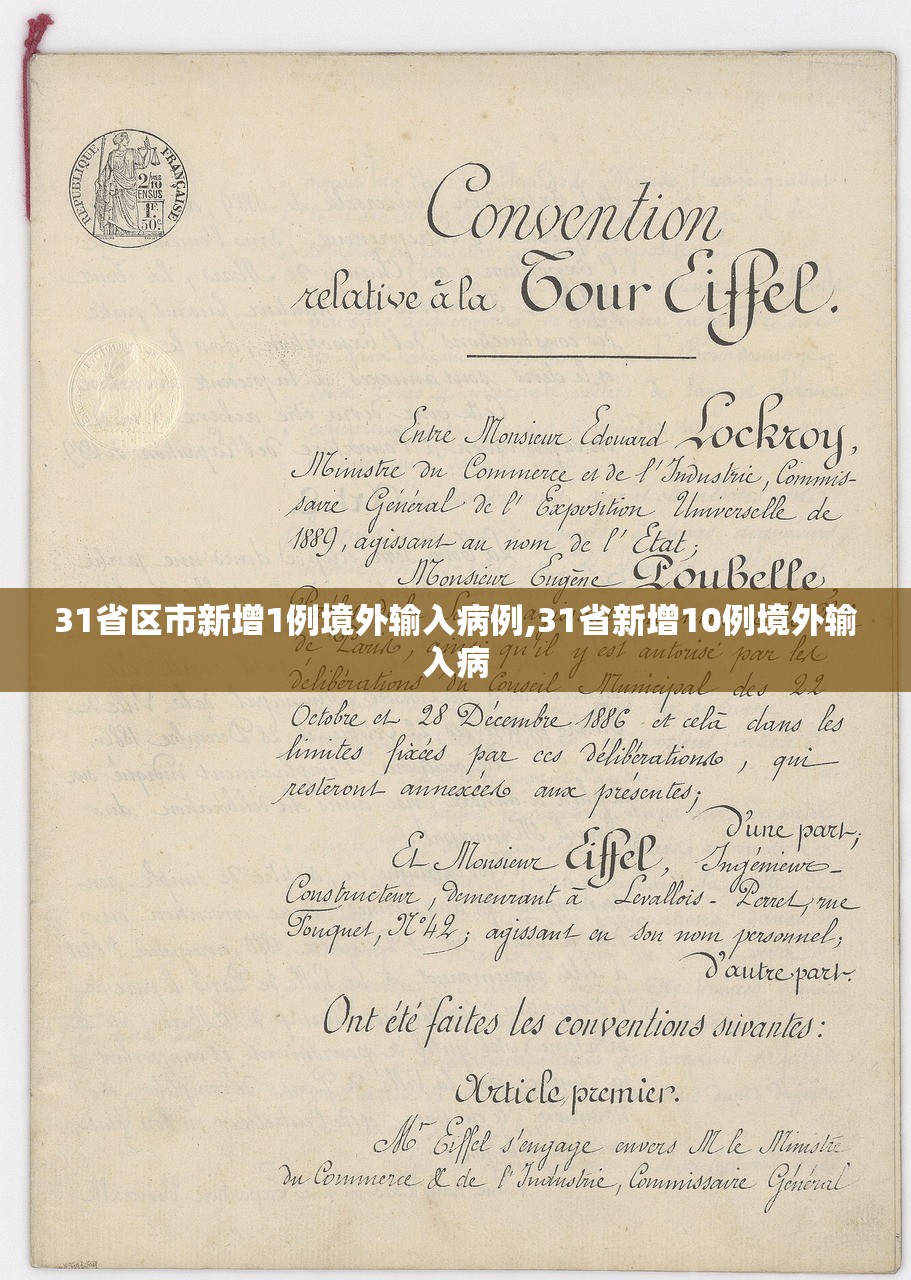 RÉPUBLIQUE FRANÇAISE
2/10
EN SUS
1F.
50c
Convention
relative à la Tour Eiffel.
Entre Monsieur Edouard Lockroy,
Ministre du Commerce et de l'Industrie, Commis-
saire Général de l'Exposition Universelle de
1889, agissant au nom de l'Etat;
Monsieur Eugène Poubelle,
31省区市新增1例境外输入病例,31省新增10例境外输
入病
de Paris, ainsi qu'il y est autorisé par les
délibérations du Conseil Municipal des 22
Octobre et 28 Décembre 1886 et celà dans les
limites fixées par ces délibérations, qui
resteront annexées aux présentes;
d'une part;
Et Monsieur Eiffel, Ingénieur-
Constructeur, demeurant à Levallois-Perret, rue
Fouquet, N°42; agissant en son nom personnel;
d'autre part.
Ont été faites les conventions suivantes:
Article premier.
Mr Eiffel s'engage envers M le Ministre
du Commerce & de l'Industrie, Commissaire Général